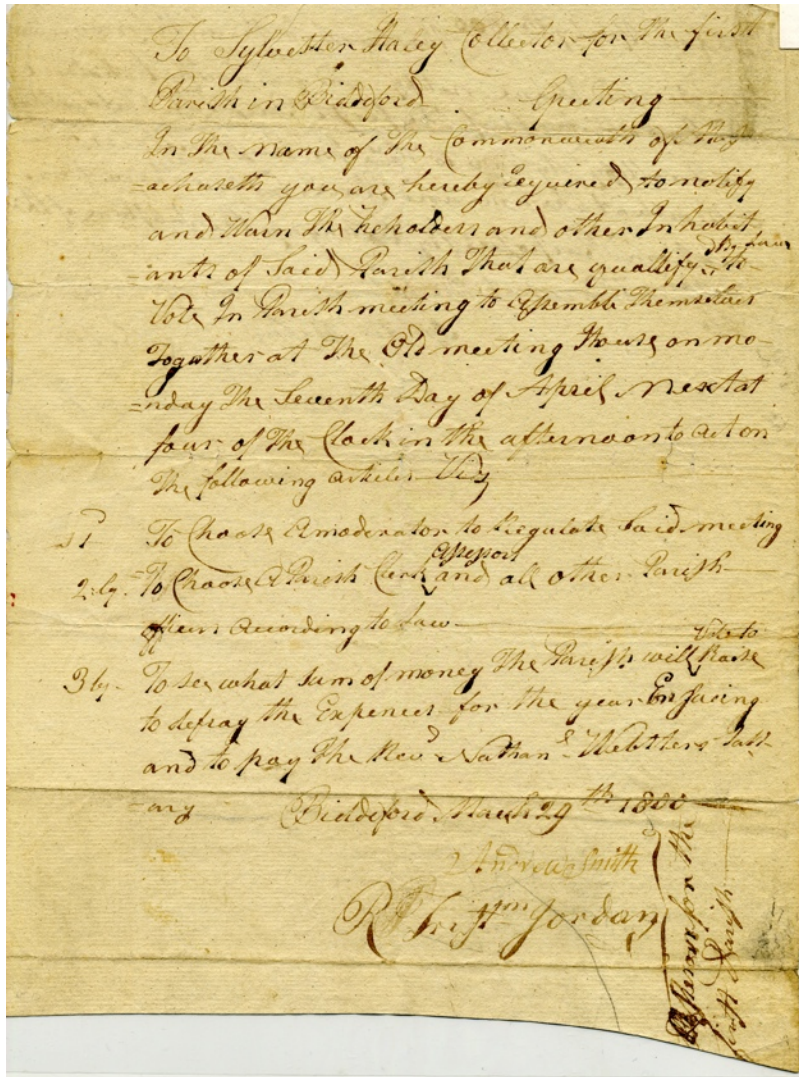 To Sylvester Haley Collector for the first
Parish in Biddeford Greeting
In the name of the Commonwealth of Mas
=achusetts you are hereby Required to notify
and Warn The freholders and other Inhabit
=ants of Said Parish That are quallifyd By Law to
Vote In Parish meeting to assemble Themselves
Together at The Old meeting House on mo-
=nday The Seventh Day of April Next at
four of The Clock in the afternoon to act on
The following articles Viz
1st To Choose A moderator to Regulate Said meeting
2ly- To Choose A Parish Clerk assessors and all other Parish
officers According to Law
3ly- To see what Sum of money The Parish will Vote to Raise
to defray the Expences for the year Ensueing
and to pay The Revd Nathanl Websters Sall-
=ary Biddeford March 29th 1800
Andrew Smith
Tristm Jordan
Assessors of the
first Parish